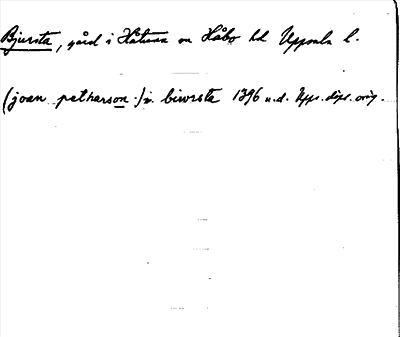 Bjursta, gård i Håtuna sn Håbo hd Uppsala l.
(joan petharson) i biwrsta 1396 u.d. Upps. dipl. orig.